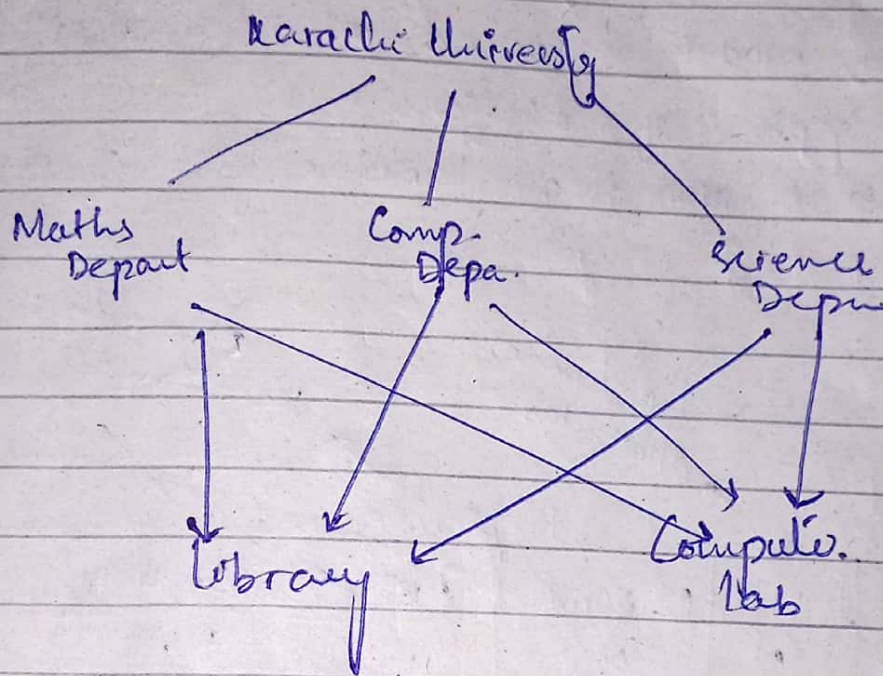 Karachi University
Maths
Depart
Comp.
Depa.
Science
Depar
Library
Computer.
Lab